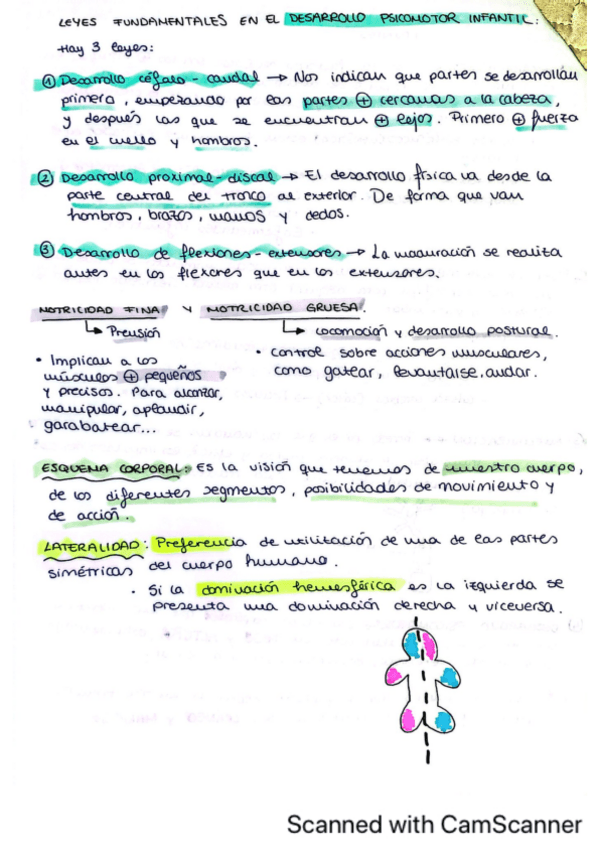 LEYES FUNDAMENTALES EN EL DESARROLLO PSICOMOTOR INFANTIL:
Hay 3 leyes:
① Desarrollo céfalo-caudal → Nos indican que partes se desarrollan
primero, empezando por las partes ⊕ cercanas a la cabeza,
y después las que se encuentran ⊕ lejos. Primero ⊕ fuerza
en el cuello y hombros.
② Desarrollo proximal-discal → El desarrollo física va desde la
parte central del tronco al exterior. De forma que van
hombros, brazos, manos y dedos.
③ Desarrollo de flexiones-extensores → La maduración se realita
antes en los flexores que en los extensores.
MOTRICIDAD FINA Y MOTRICIDAD GRUESA.
↳ Prensión
↳ Locomoción y desarrollo postural.
• Implican a los
músculos ⊕ pequeños
y precisos. Para alcanzar,
manipular, aplaudir,
garabatear...
• control sobre acciones musculares,
como gatear, levantarse, andar.
ESQUEMA CORPORAL: Es la visión que tenemos de nuestro cuerpo,
de los diferentes segmentos, posibilidades de movimiento y
de acción.
LATERALIDAD: Preferencia de utilitación de una de las partes
simétricas del cuerpo humano.
• Si la dominación hemesférica es la izquierda se
presenta una dominación derecha y viceversa.
Scanned with CamScanner